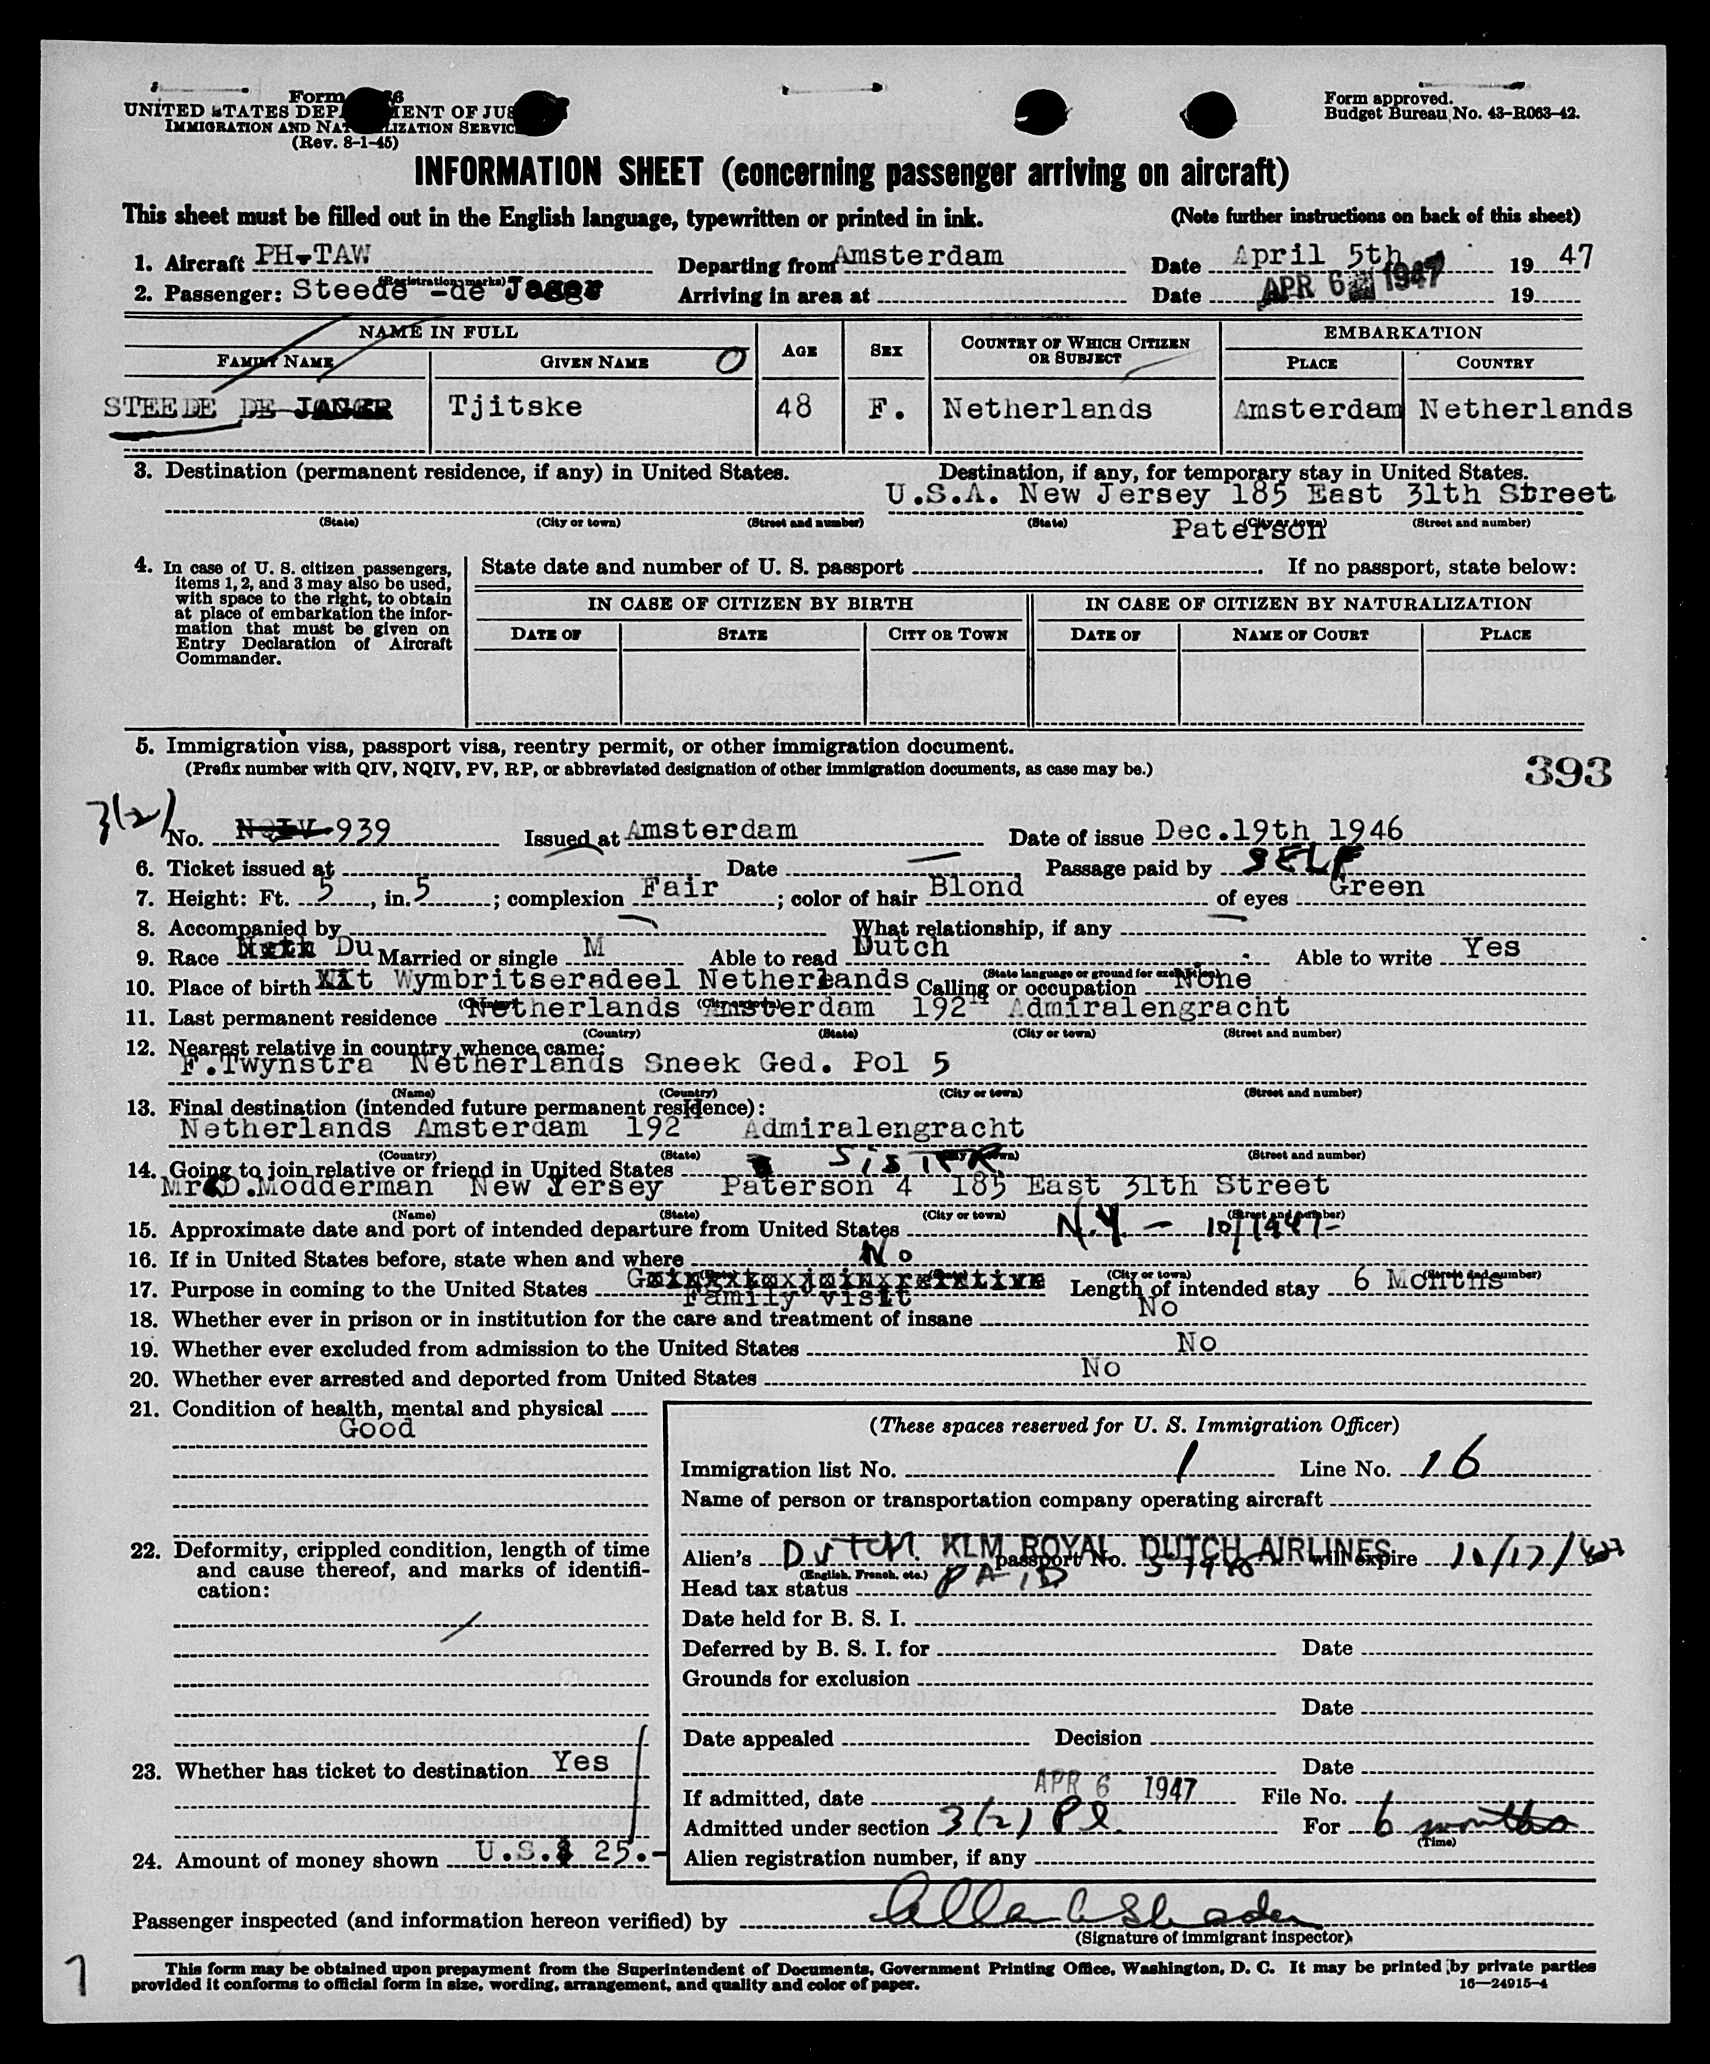 Form
UNITED STATES DEP MENT OF JUS
IMMIGRATION AND NAT LIZATION SERVIC
(Rev. 8-1-45)
Form approved.
Budget Bureau No. 43-R063-42.
INFORMATION SHEET (concerning passenger arriving on aircraft)
This sheet must be filled out in the English language, typewritten or printed in ink. (Note further instructions on back of this sheet)
1. Aircraft PH-TAW Departing from Amsterdam Date April 5th 19 47
(Registration marks)
2. Passenger: Steede - de Jager Arriving in area at Date APR 6 1947 19
NAME IN FULL AGE SEX COUNTRY OF WHICH CITIZEN OR SUBJECT EMBARKATION
FAMILY NAME GIVEN NAME O PLACE COUNTRY
STEEDE DE JAGER Tjitske 48 F. Netherlands Amsterdam Netherlands
3. Destination (permanent residence, if any) in United States. Destination, if any, for temporary stay in United States.
U.S.A. New Jersey 185 East 31th Street
(State) (City or town) (Street and number) (State) (City or town) (Street and number)
Paterson
4. In case of U. S. citizen passengers, items 1, 2, and 3 may also be used, with space to the right, to obtain at place of embarkation the information that must be given on Entry Declaration of Aircraft Commander.
State date and number of U. S. passport If no passport, state below:
IN CASE OF CITIZEN BY BIRTH IN CASE OF CITIZEN BY NATURALIZATION
DATE OF STATE CITY OR TOWN DATE OF NAME OF COURT PLACE
5. Immigration visa, passport visa, reentry permit, or other immigration document.
(Prefix number with QIV, NQIV, PV, RP, or abbreviated designation of other immigration documents, as case may be.)
393
3(2)
No. NQIV-939 Issued at Amsterdam Date of issue Dec.19th 1946
6. Ticket issued at Date Passage paid by SELF
7. Height: Ft. 5, in. 5; complexion Fair; color of hair Blond of eyes Green
8. Accompanied by What relationship, if any
9. Race Du Married or single M Able to read Dutch Able to write Yes
(State language or ground for exemption)
10. Place of birth Wymbritseradeel Netherlands Calling or occupation None
(Country) (City or town)
11. Last permanent residence Netherlands Amsterdam 192 Admiralengracht
(Country) (State) (City or town) (Street and number)
12. Nearest relative in country whence came:
F.Twynstra Netherlands Sneek Ged. Pol 5
(Name) (Country) (City or town) (Street and number)
13. Final destination (intended future permanent residence):
Netherlands Amsterdam 192 Admiralengracht
(Country) (State) (City or town) (Street and number)
14. Going to join relative or friend in United States SISTER
Mr D.Modderman New Jersey Paterson 4 185 East 31th Street
(Name) (State) (City or town) (Street and number)
15. Approximate date and port of intended departure from United States N.Y. - 10/1947-
16. If in United States before, state when and where No
(City or town) (Street and number)
17. Purpose in coming to the United States Going to join relative Length of intended stay 6 Months
Family visit
18. Whether ever in prison or in institution for the care and treatment of insane No
19. Whether ever excluded from admission to the United States No
20. Whether ever arrested and deported from United States No
21. Condition of health, mental and physical
Good
22. Deformity, crippled condition, length of time and cause thereof, and marks of identification:
23. Whether has ticket to destination Yes
24. Amount of money shown U.S.$ 25.-
(These spaces reserved for U. S. Immigration Officer)
Immigration list No. 1 Line No. 16
Name of person or transportation company operating aircraft
KLM ROYAL DUTCH AIRLINES
Alien's DUTCH passport No. will expire
(English, French, etc.)
Head tax status PAID
Date held for B. S. I.
Deferred by B. S. I. for Date
Grounds for exclusion
Date
Date appealed Decision
Date
If admitted, date APR 6 1947 File No.
Admitted under section 3(2) Pl. For 6 months
(Time)
Alien registration number, if any
Passenger inspected (and information hereon verified) by
(Signature of immigrant inspector)
7
This form may be obtained upon prepayment from the Superintendent of Documents, Government Printing Office, Washington, D. C. It may be printed by private parties
provided it conforms to official form in size, wording, arrangement, and quality and color of paper. 16—24915-4